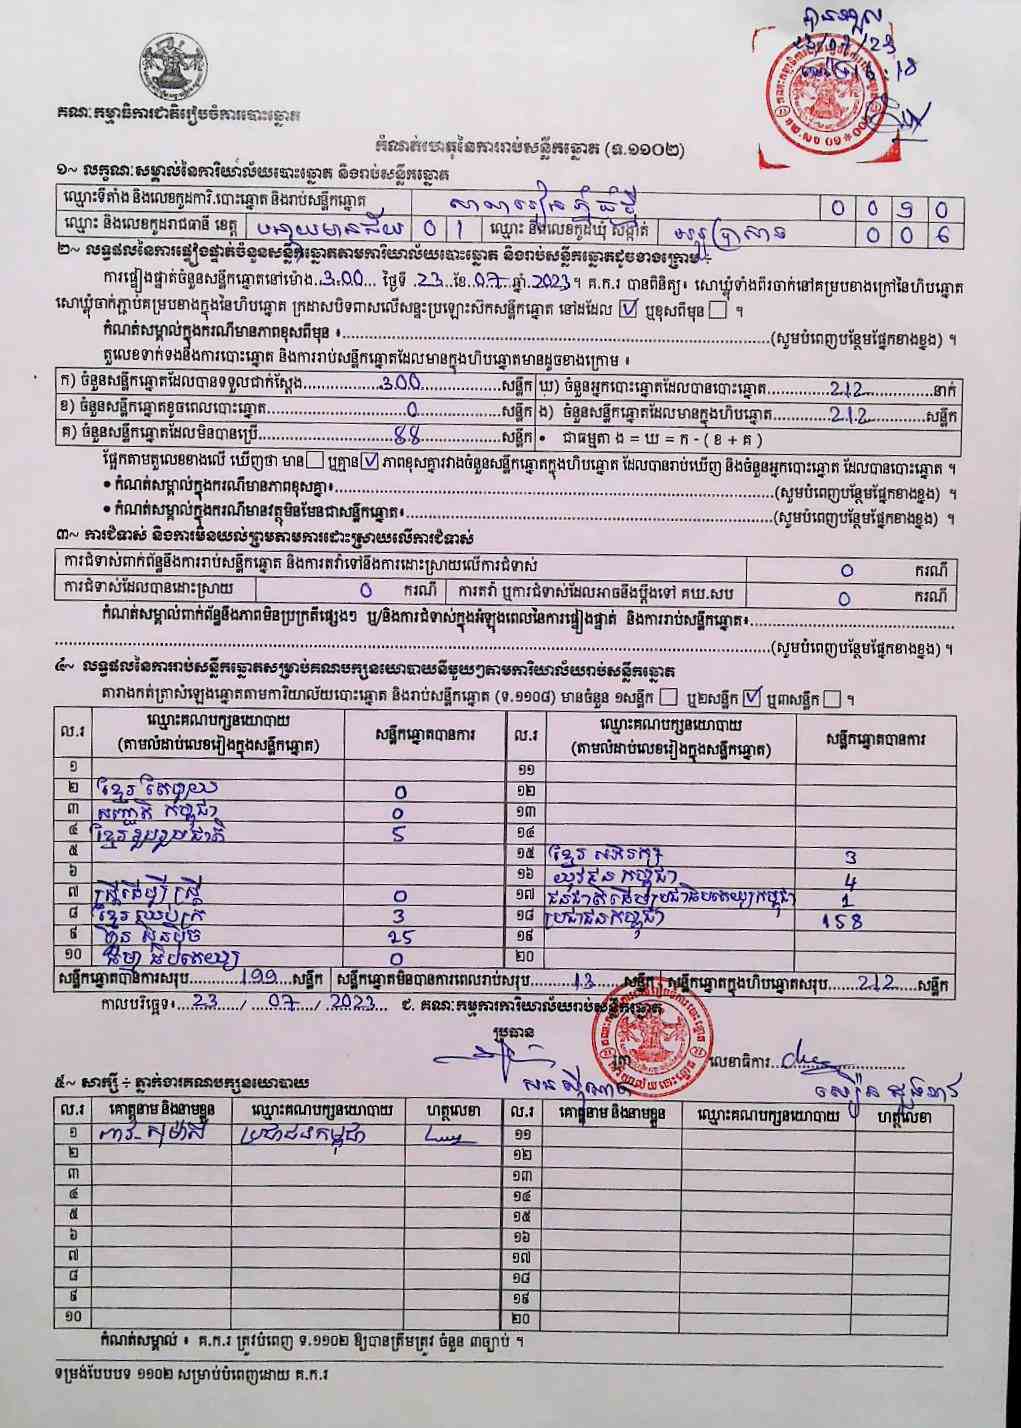 គណៈកម្មាធិការជាតិរៀបចំការបោះឆ្នោត
បានទទួល
កំណត់ហេតុនៃការរាប់សន្លឹកឆ្នោត (ទ.១១០២)
១~ លក្ខណៈសម្គាល់នៃការិយាល័យបោះឆ្នោត និងរាប់សន្លឹកឆ្នោត
ឈ្មោះទីតាំង និងលេខកូដការិ.បោះឆ្នោត និងរាប់សន្លឹកឆ្នោត សាលារៀន ភ្នំធំថ្មី 0 0 9 0
ឈ្មោះ និងលេខកូដរាជធានី ខេត្ត បន្ទាយមានជ័យ 0 1 ឈ្មោះ និងលេខកូដឃុំ សង្កាត់ អូរប្រាសាទ 0 0 6
២~ លទ្ធផលនៃការផ្ទៀងផ្ទាត់ចំនួនសន្លឹកឆ្នោតតាមការិយាល័យបោះឆ្នោត និងរាប់សន្លឹកឆ្នោតដូចខាងក្រោម ÷
ការផ្ទៀងផ្ទាត់ចំនួនសន្លឹកឆ្នោតនៅម៉ោង..3.00... ថ្ងៃទី .23..ខែ.07..ឆ្នាំ.2023។ គ.ក.រ បានពិនិត្យ៖ សោឃ្លុំទាំងពីរចាក់នៅគម្របខាងក្រៅនៃហិបឆ្នោត
សោឃ្លុំចាក់ភ្ជាប់គម្របខាងក្នុងនៃហិបឆ្នោត ក្រដាសបិទពាសលើសន្ទះប្រឡោះស៊កសន្លឹកឆ្នោត នៅដដែល ☑ ឬខុសពីមុន ☐ ។
កំណត់សម្គាល់ក្នុងករណីមានភាពខុសពីមុន ៖...(សូមបំពេញបន្ថែមផ្នែកខាងខ្នង) ។
តួលេខទាក់ទងនឹងការបោះឆ្នោត និងការរាប់សន្លឹកឆ្នោតដែលមានក្នុងហិបឆ្នោតមានដូចខាងក្រោម ៖
ក) ចំនួនសន្លឹកឆ្នោតដែលបានទទួលជាក់ស្តែង...300...សន្លឹក ឃ) ចំនួនអ្នកបោះឆ្នោតដែលបានបោះឆ្នោត...212...នាក់
ខ) ចំនួនសន្លឹកឆ្នោតខូចពេលបោះឆ្នោត...0...សន្លឹក ង) ចំនួនសន្លឹកឆ្នោតដែលមានក្នុងហិបឆ្នោត...212...សន្លឹក
គ) ចំនួនសន្លឹកឆ្នោតដែលមិនបានប្រើ...88...សន្លឹក • ជាធម្មតា ង = ឃ = ក - ( ខ + គ )
ផ្អែកតាមតួលេខខាងលើ ឃើញថា មាន ☐ ឬគ្មាន ☑ ភាពខុសគ្នារវាងចំនួនសន្លឹកឆ្នោតក្នុងហិបឆ្នោត ដែលបានរាប់ឃើញ និងចំនួនអ្នកបោះឆ្នោត ដែលបានបោះឆ្នោត ។
• កំណត់សម្គាល់ក្នុងករណីមានភាពខុសគ្នា៖...(សូមបំពេញបន្ថែមផ្នែកខាងខ្នង) ។
• កំណត់សម្គាល់ក្នុងករណីមានវត្ថុមិនមែនជាសន្លឹកឆ្នោត៖...(សូមបំពេញបន្ថែមផ្នែកខាងខ្នង) ។
៣~ ការជំទាស់ និងការមិនយល់ព្រមតាមការដោះស្រាយលើការជំទាស់
ការជំទាស់ពាក់ព័ន្ធនឹងការរាប់សន្លឹកឆ្នោត និងការតវ៉ាទៅនឹងការដោះស្រាយលើការជំទាស់ 0 ករណី
ការជំទាស់ដែលបានដោះស្រាយ 0 ករណី ការតវ៉ា ឬការជំទាស់ដែលអាចនឹងប្តឹងទៅ គឃ.សប 0 ករណី
កំណត់សម្គាល់ពាក់ព័ន្ធនឹងភាពមិនប្រក្រតីផ្សេងៗ ឬ/និងការជំទាស់ក្នុងអំឡុងពេលនៃការផ្ទៀងផ្ទាត់ និងការរាប់សន្លឹកឆ្នោត៖...
...(សូមបំពេញបន្ថែមផ្នែកខាងខ្នង) ។
៤~ លទ្ធផលនៃការរាប់សន្លឹកឆ្នោតសម្រាប់គណបក្សនយោបាយនីមួយៗតាមការិយាល័យរាប់សន្លឹកឆ្នោត
តារាងកត់ត្រាសំឡេងឆ្នោតតាមការិយាល័យបោះឆ្នោត និងរាប់សន្លឹកឆ្នោត (ទ.១១០៨) មានចំនួន ១សន្លឹក ☐ ឬ២សន្លឹក ☑ ឬ៣សន្លឹក ☐ ។
ល.រ ឈ្មោះគណបក្សនយោបាយ (តាមលំដាប់លេខរៀងក្នុងសន្លឹកឆ្នោត) សន្លឹកឆ្នោតបានការ ល.រ ឈ្មោះគណបក្សនយោបាយ (តាមលំដាប់លេខរៀងក្នុងសន្លឹកឆ្នោត) សន្លឹកឆ្នោតបានការ
១ ១១
២ ខ្មែរ តែមួយ 0 ១២
៣ សញ្ជាតិ កម្ពុជា 0 ១៣
៤ ខ្មែរ រួបរួមជាតិ 5 ១៤
៥ ១៥ ខ្មែរ អភិរក្ស 3
៦ ១៦ យុវជន កម្ពុជា 4
៧ ស្ត្រីដើម្បី ស្ត្រី 0 ១៧ ជនជាតិដើមប្រជាធិបតេយ្យកម្ពុជា 1
៨ ខ្មែរ ឈប់ក្រ 3 ១៨ ប្រជាជនកម្ពុជា 158
៩ ហ៊្វុន ស៊ិនប៉ិច 25 ១៩
១០ ធម្មា ធិបតេយ្យ 0 ២០
សន្លឹកឆ្នោតបានការសរុប...199...សន្លឹក សន្លឹកឆ្នោតមិនបានការពេលរាប់សរុប...13...សន្លឹក សន្លឹកឆ្នោតក្នុងហិបឆ្នោតសរុប...212...សន្លឹក
កាលបរិច្ឆេទ៖...23.../...07.../...2023... ជ. គណៈកម្មការការិយាល័យរាប់សន្លឹកឆ្នោត
ប្រធាន
លេខាធិការ
៥~ សាក្សី ÷ ភ្នាក់ងារគណបក្សនយោបាយ
ល.រ គោត្តនាម និងនាមខ្លួន ឈ្មោះគណបក្សនយោបាយ ហត្ថលេខា ល.រ គោត្តនាម និងនាមខ្លួន ឈ្មោះគណបក្សនយោបាយ ហត្ថលេខា
១ ប្រជាជនកម្ពុជា ១១
២ ១២
៣ ១៣
៤ ១៤
៥ ១៥
៦ ១៦
៧ ១៧
៨ ១៨
៩ ១៩
១០ ២០
កំណត់សម្គាល់ ៖ គ.ក.រ ត្រូវបំពេញ ទ.១១០២ ឱ្យបានត្រឹមត្រូវ ចំនួន ៣ច្បាប់ ។
ទម្រង់បែបបទ ១១០២ សម្រាប់បំពេញដោយ គ.ក.រ